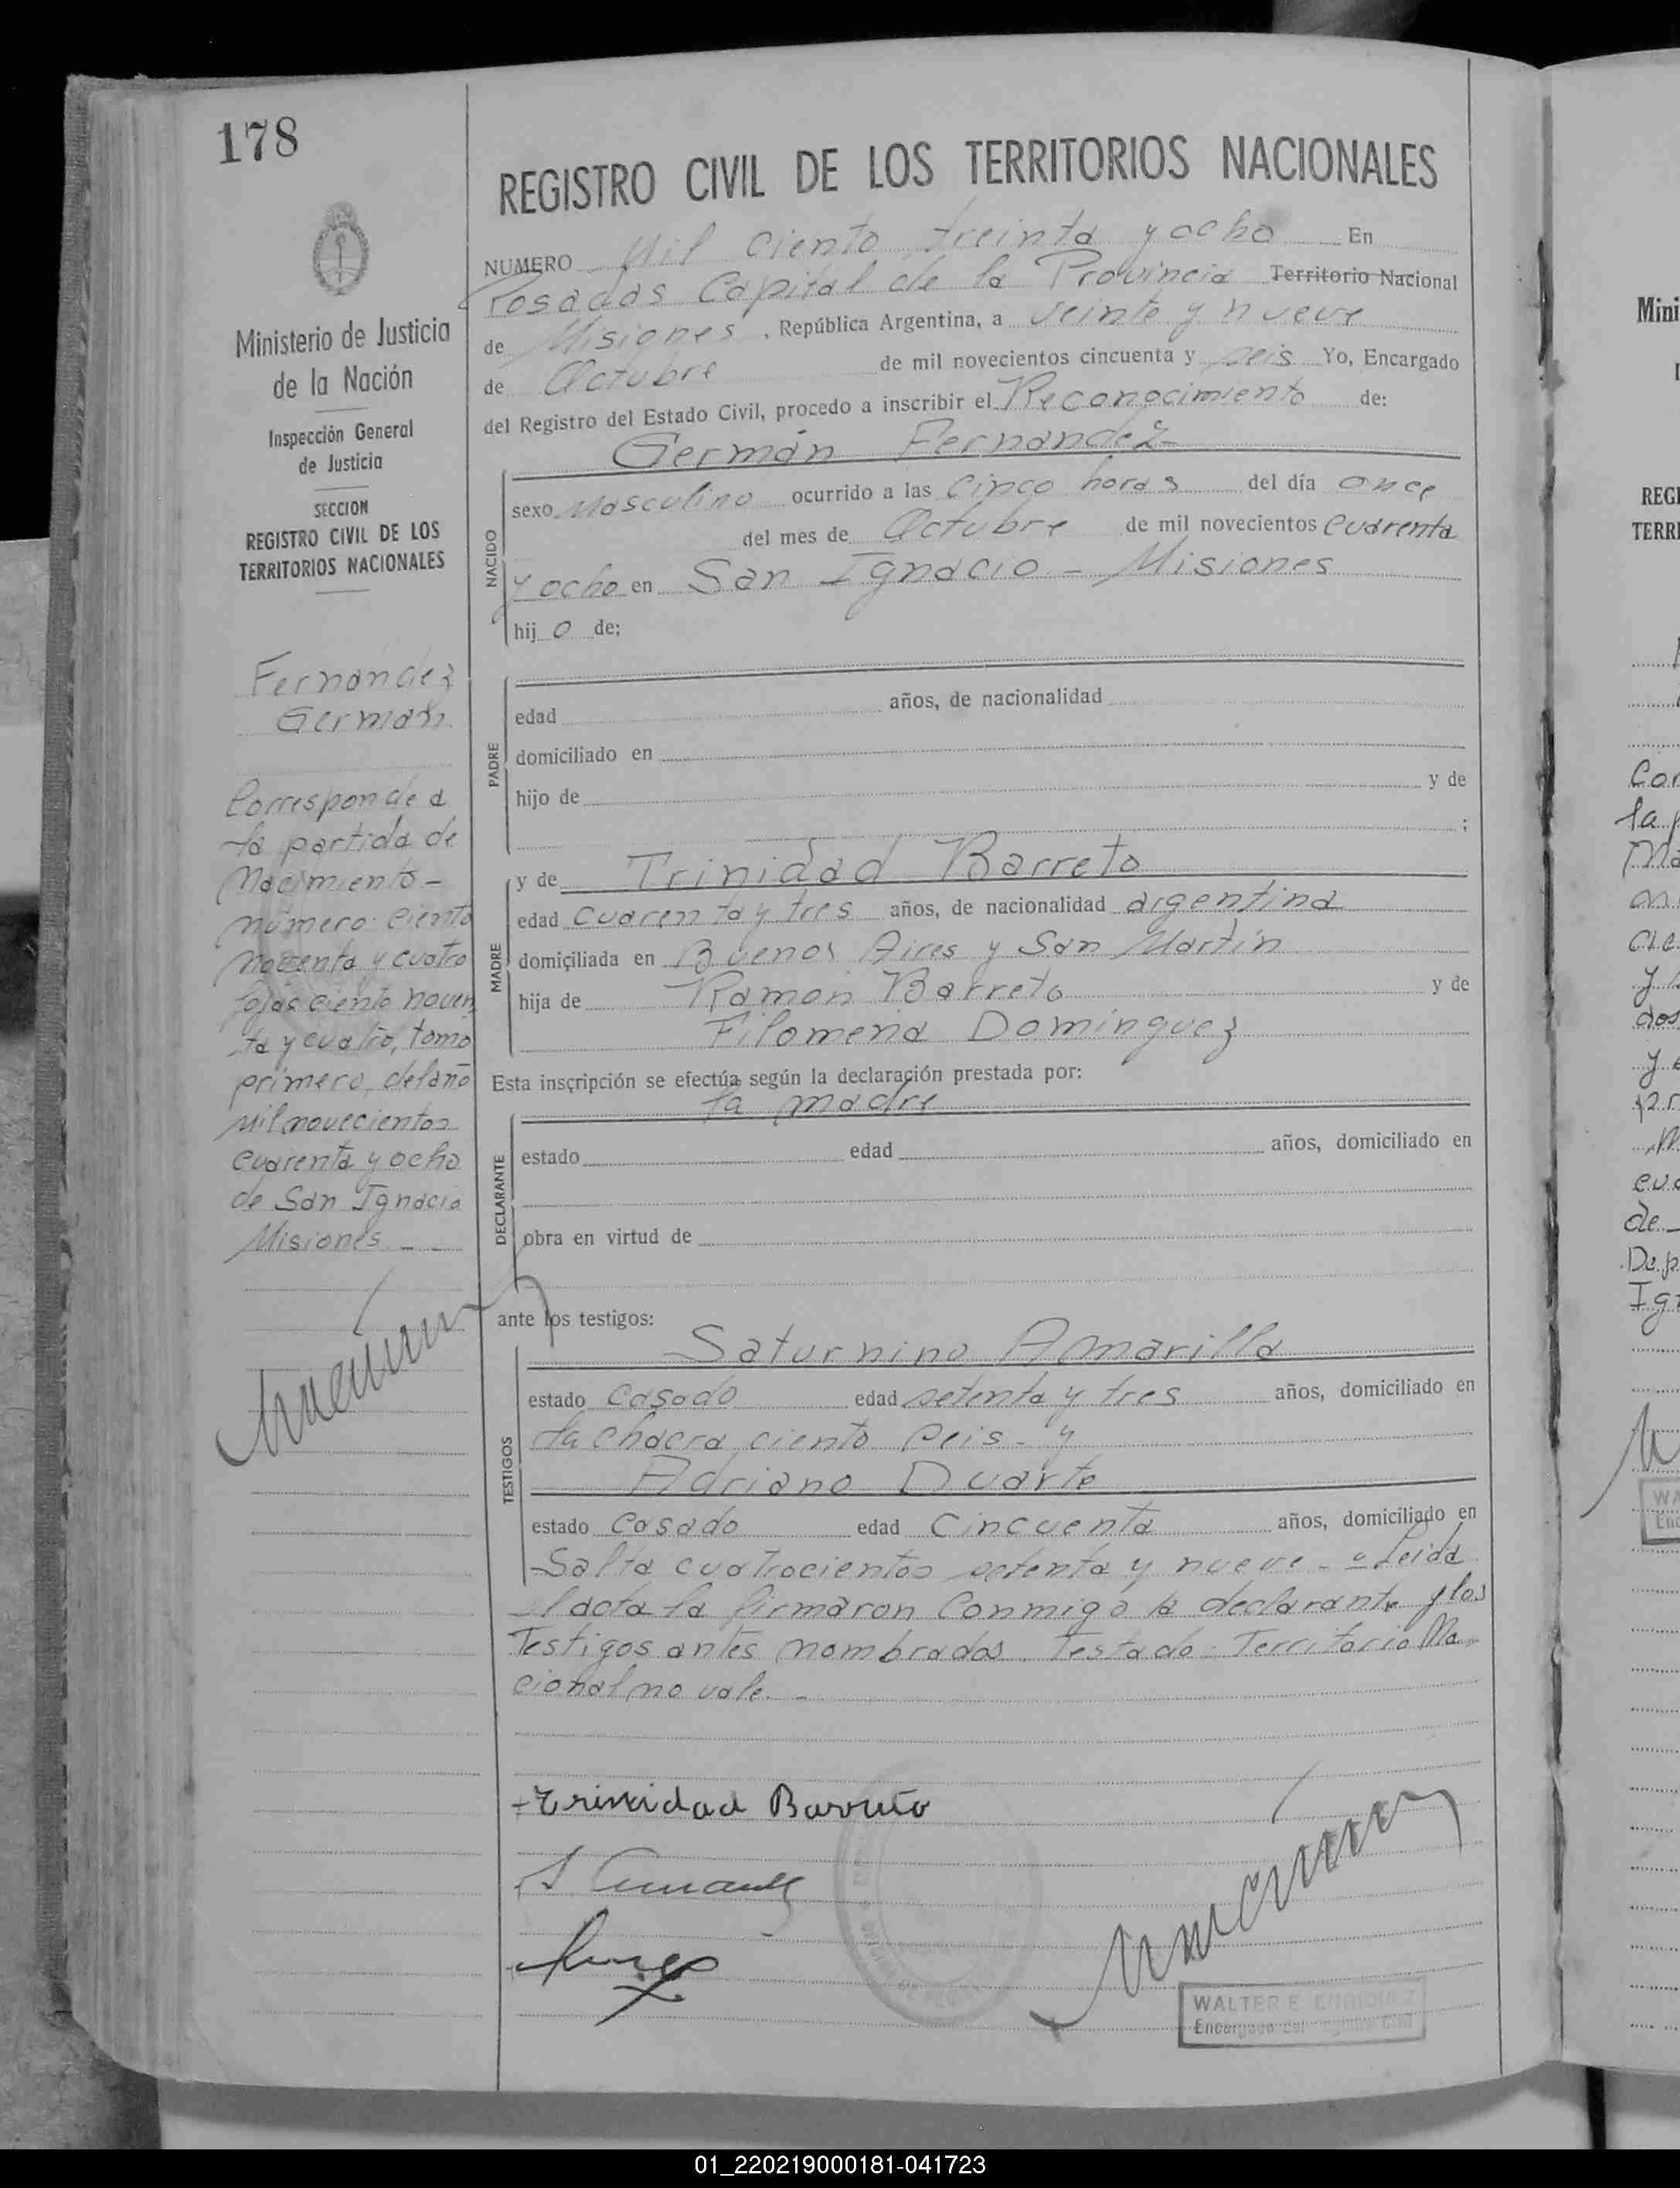 178
REGISTRO CIVIL DE LOS TERRITORIOS NACIONALES
Ministerio de Justicia
de la Nación
Inspección General
de Justicia
SECCION
REGISTRO CIVIL DE LOS
TERRITORIOS NACIONALES
Fernandez
German
Corresponde a
la partida de
Nacimiento -
número ciento
noventa y cuatro
fojas ciento noven
ta y cuatro, tomo
primero, del año
mil novecientos
cuarenta y ocho
de San Ignacio
Misiones - -
NUMERO Mil ciento treinta y ocho En
Posadas Capital de la Provincia Territorio Nacional
de Misiones , República Argentina, a veinte y nueve
de Octubre de mil novecientos cincuenta y seis Yo, Encargado
del Registro del Estado Civil, procedo a inscribir el Reconocimiento de:
Germán Fernandez
NACIDO
sexo Masculino ocurrido a las cinco horas del día once
del mes de Octubre de mil novecientos cuarenta
y ocho en San Ignacio - Misiones
hij o de;
PADRE
edad años, de nacionalidad
domiciliado en
hijo de y de
;
MADRE
y de Trinidad Barreto
edad cuarenta y tres años, de nacionalidad argentina
domiciliada en Buenos Aires y San Martín
hija de Ramon Barreto y de
Filomena Dominguez
Esta inscripción se efectúa según la declaración prestada por:
la madre
DECLARANTE
estado edad años, domiciliado en
obra en virtud de
ante los testigos:
TESTIGOS
Saturnino Amarilla
estado casado edad setenta y tres años, domiciliado en
la chacra ciento seis - y
Adriano Duarte
estado casado edad cincuenta años, domiciliado en
Salta cuatrocientos setenta y nueve - Leida
el acta la firmaron conmigo la declarante y los
Testigos antes nombrados. Testado: Territorio Na-
cional no vale. -
Trinidad Barreto
WALTER E. ENRIQUEZ
Encargado del Registro Civil
Mini
REGI
TERRI
la p
y
dos
de
Dep
Ign
01_220219000181-041723